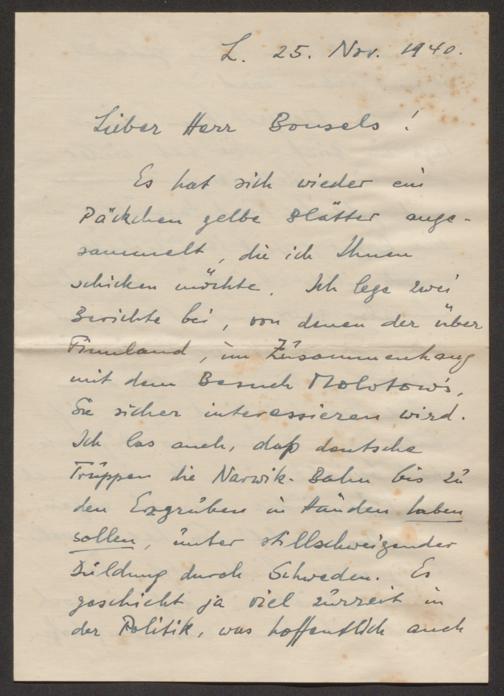 L. 25. Nov. 1940.
Lieber Herr Bonsels!
Es hat sich wieder ein
Päckchen gelbe Blätter ange-
sammelt, die ich Ihnen
schicken möchte. Ich lege zwei
Berichte bei, von denen der über
Finnland, im Zusammenhang
mit dem Besuch Molotow's,
Sie sicher interessieren wird.
Ich las auch, daß deutsche
Truppen die Narwik-Bahn bis zu
den Erzgruben in Händen haben
sollen, unter stillschweigender
Duldung durch Schweden. Es
geschieht ja viel zurzeit in
der Politik, was hoffentlich auch